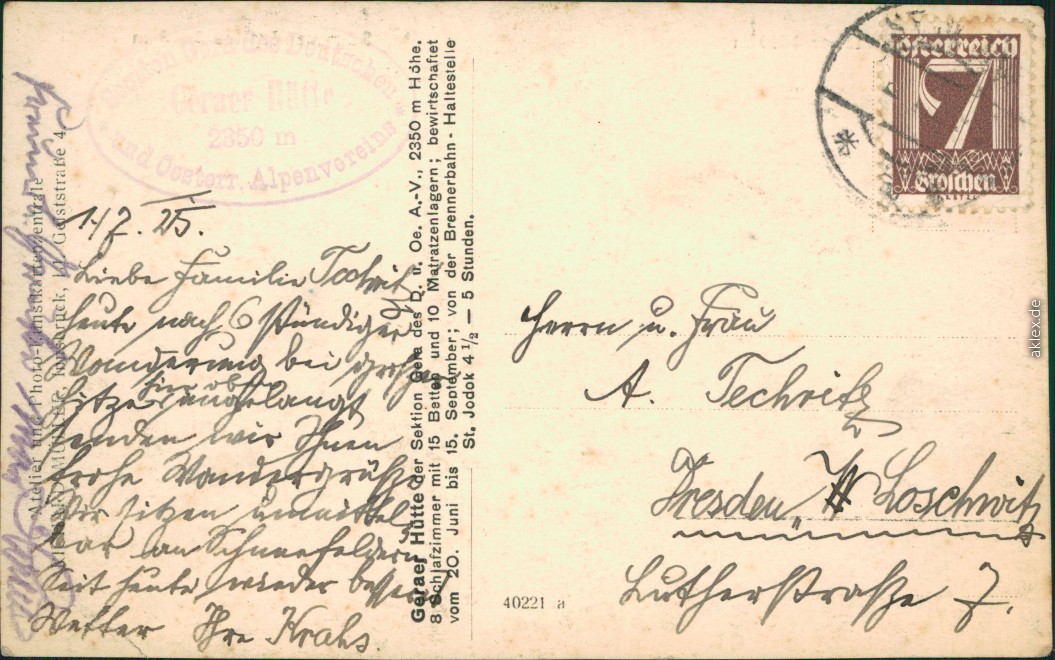 des Deutschen
Geraer Hütte
2350 m
und Oesterr. Alpenvereins
Österreich
7
Groschen
17. VII. 25.
Liebe Familie Techritz
heute nach 6 stündiger
Wanderung bei großer
Hitze hier oben angelangt
senden wir Ihnen
frohe Wandergrüße
Wir sitzen unmittel
bar an Schneefeldern
Seit heute wieder besser
Wetter Ihre Krahs.
Geraer Hütte der Sektion Gera des D. u. Oe. A.-V., 2350 m Höhe.
8 Schlafzimmer mit 15 Betten und 10 Matratzenlagern; bewirtschaftet
vom 20. Juni bis 15. September; von der Brennerbahn - Haltestelle
St. Jodok 4 ½ — 5 Stunden.
Atelier und Photo-Kunstkartenzentrale
Innsbruck, Geiststraße 4
Herrn u. Frau
A. Techritz
Dresden, Loschwitz
Lutherstraße 7.
40221 a
aklex.de